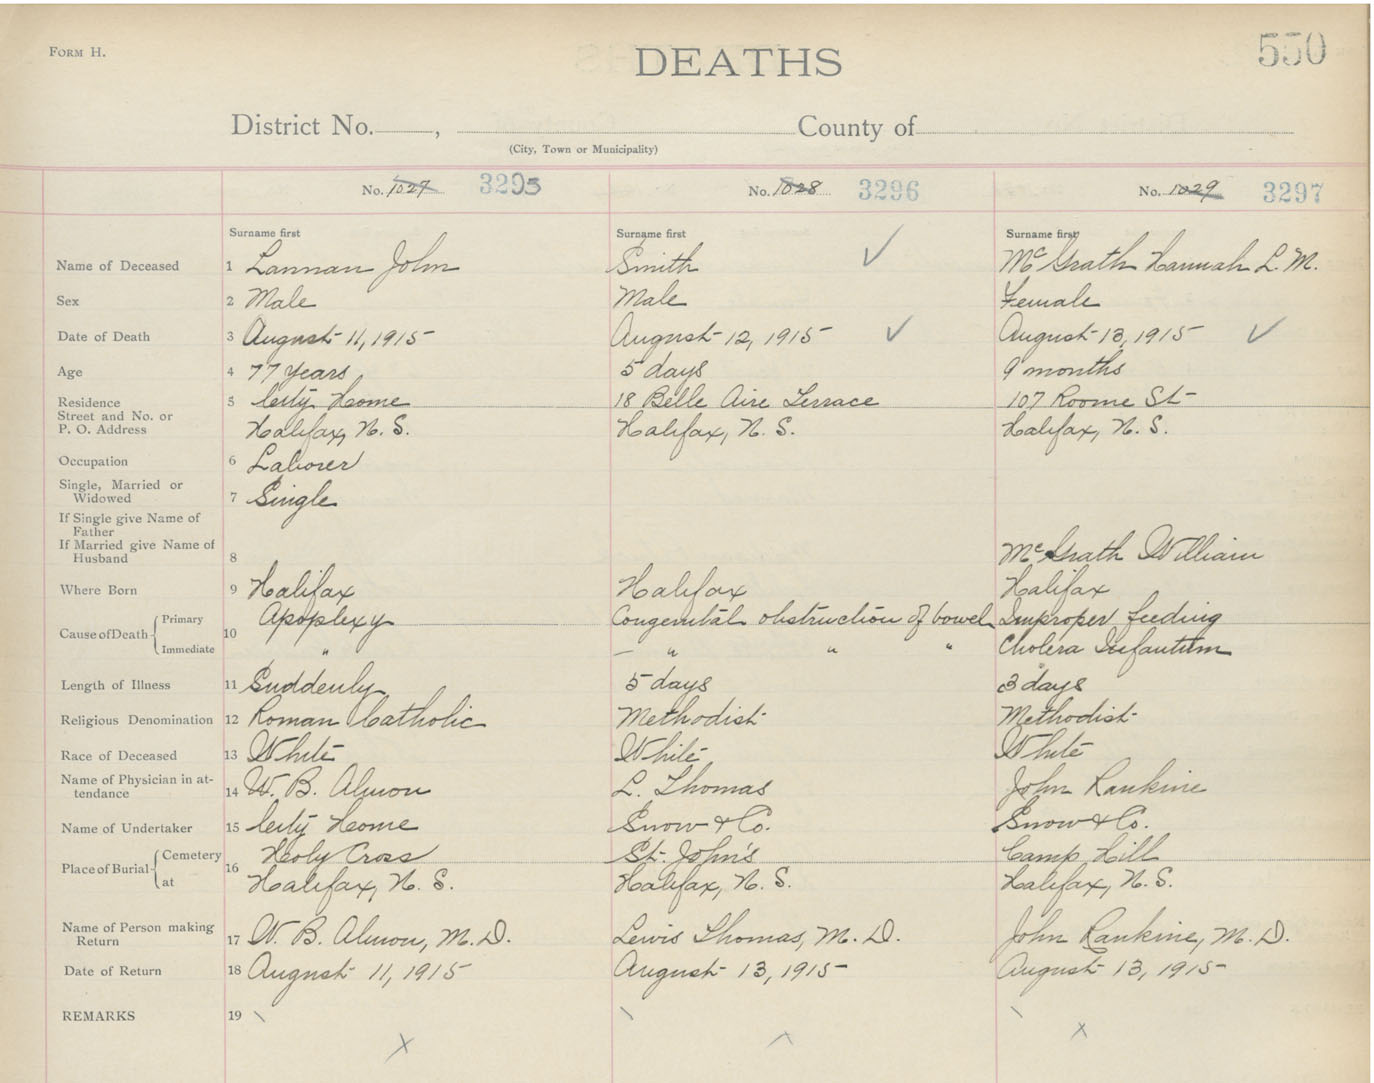 Form H.
DEATHS
550
District No. , County of
(City, Town or Municipality)
No. 1027 3295 No. 1028 3296 No. 1029 3297
Surname first Surname first Surname first
Name of Deceased 1 Lannan John Smith McGrath Hannah L. M.
Sex 2 Male Male Female
Date of Death 3 August 11, 1915 August 12, 1915 August 13, 1915
Age 4 77 years 5 days 9 months
Residence 5 City Home 18 Belle Aire Terrace 107 Roome St
Street and No. or
P. O. Address Halifax, N. S. Halifax, N. S. Halifax, N. S.
Occupation 6 Laborer
Single, Married or
Widowed 7 Single
If Single give Name of
Father
If Married give Name of
Husband 8 McGrath William
Where Born 9 Halifax Halifax Halifax
Cause of Death Primary 10 Apoplexy Congenital obstruction of bowel Improper feeding
Immediate " — " " " Cholera Infantum
Length of Illness 11 Suddenly 5 days 3 days
Religious Denomination 12 Roman Catholic Methodist Methodist
Race of Deceased 13 White White White
Name of Physician in at-
tendance 14 W. B. Almon L. Thomas John Rankine
Name of Undertaker 15 City Home Snow & Co. Snow & Co.
Place of Burial Cemetery 16 Holy Cross St. John's Camp Hill
at Halifax, N. S. Halifax, N. S. Halifax, N. S.
Name of Person making
Return 17 W. B. Almon, M. D. Lewis Thomas, M. D. John Rankine, M. D.
Date of Return 18 August 11, 1915 August 13, 1915 August 13, 1915
REMARKS 19